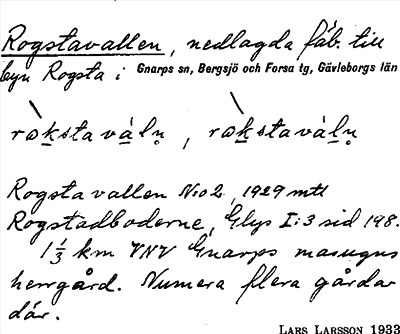 Rogstavallen, nedlagda fäb. till
byn Rogsta i Gnarps sn, Bergsjö och Forsa tg, Gävleborgs län
Rogstavallen No 2, 1929 mtl
Rogstadboderne, Glys I:3 sid 198.
1 1/3 km VNV Gnarps masugns
herrgård. Numera flera gårdar
där.
LARS LARSSON 1933